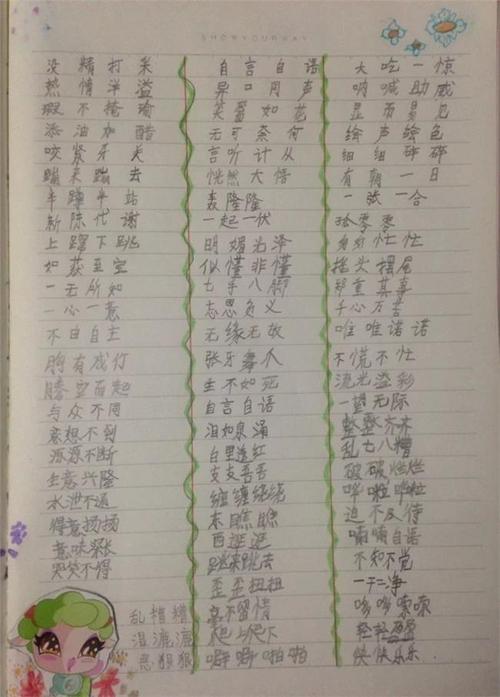 SHOWYOURWAY
没精打采
热情洋溢
瑕不掩瑜
添油加醋
咬紧牙关
蹦来蹦去
半蹲半站
新陈代谢
上蹿下跳
如获至宝
一无所知
一心一意
不由自主
胸有成竹
腾空而起
与众不同
意想不到
源源不断
生意兴隆
水泄不通
得意扬扬
意味深长
哭笑不得
乱糟糟
湿漉漉
恶狠狠
自言自语
异口同声
笑靥如花
无可奈何
言听计从
恍然大悟
轰隆隆
一起一伏
明媚光泽
似懂非懂
七手八脚
忘恩负义
无缘无故
张牙舞爪
生不如死
自言自语
泪如泉涌
白里透红
支支吾吾
缠缠绕绕
东瞧瞧
西逛逛
跳来跳去
歪歪扭扭
毫不留情
爬上爬下
噼噼啪啪
大吃一惊
呐喊助威
显而易见
绘声绘色
细细碎碎
有朝一日
一张一合
孤零零
匆匆忙忙
摇头摆尾
郑重其事
千心万苦
唯唯诺诺
不慌不忙
流光溢彩
一望无际
整整齐齐
乱七八糟
破破烂烂
哗啦哗啦
迫不及待
喃喃自语
不知不觉
一干二净
哆哆嗦嗦
快快乐乐